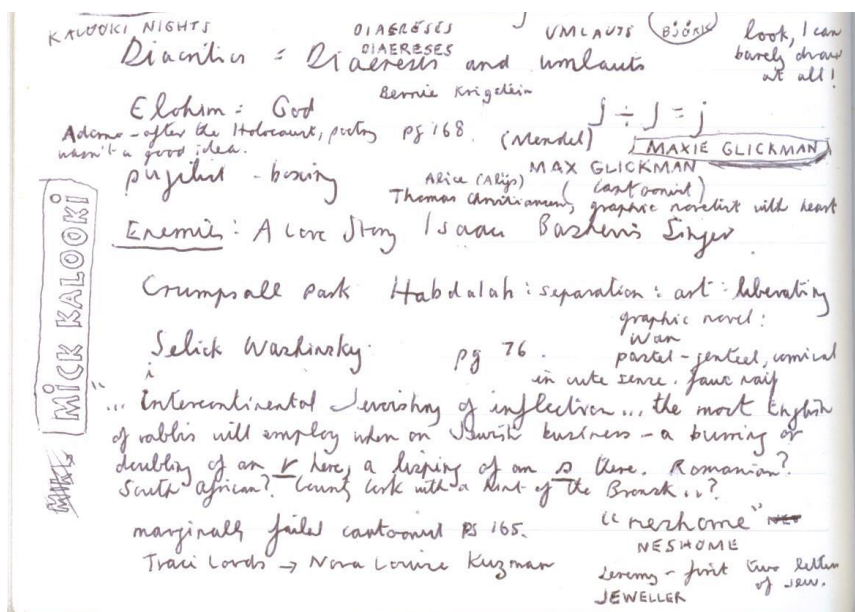 KALOOKI NIGHTS
DIAERESES
DIAERESES
UMLAUTS
BJÖRK
look, I can
barely draw
at all!
Diacritics = Diaeresis and umlauts
Bernie Krigstein
Elohim = God
J ÷ J = j
Adorno - after the Holocaust, poetry pg 168. (Mendel)
wasn't a good idea.
MAXIE GLICKMAN
MAX GLICKMAN
pugilist - boxing
Alice (Alijs) (cartoonist)
Thomas Christiansen, graphic novelist with heart
Enemies: A Love Story Isaac Bashevis Singer
MICK KALOOKI
Crumpsall Park Habdalah: separation: art: liberating
graphic novel:
wan
Selick Washinsky. pg 76. pastel - genteel, comical
i
in cute sense. faux naif
"... Intercontinental Jewishry of inflection... the most English
of rabbis will employ when on Jewish business - a burring or
doubling of an r here, a lisping of an s there. Romanian?
South African? County Cork with a hint of the Bronx..?"
marginally failed cartoonist pg 165.
"neshome"
NESHOME
Traci Lords → Nora Louise Kuzman
Jeremy - first two letters
of Jew.
JEWELLER